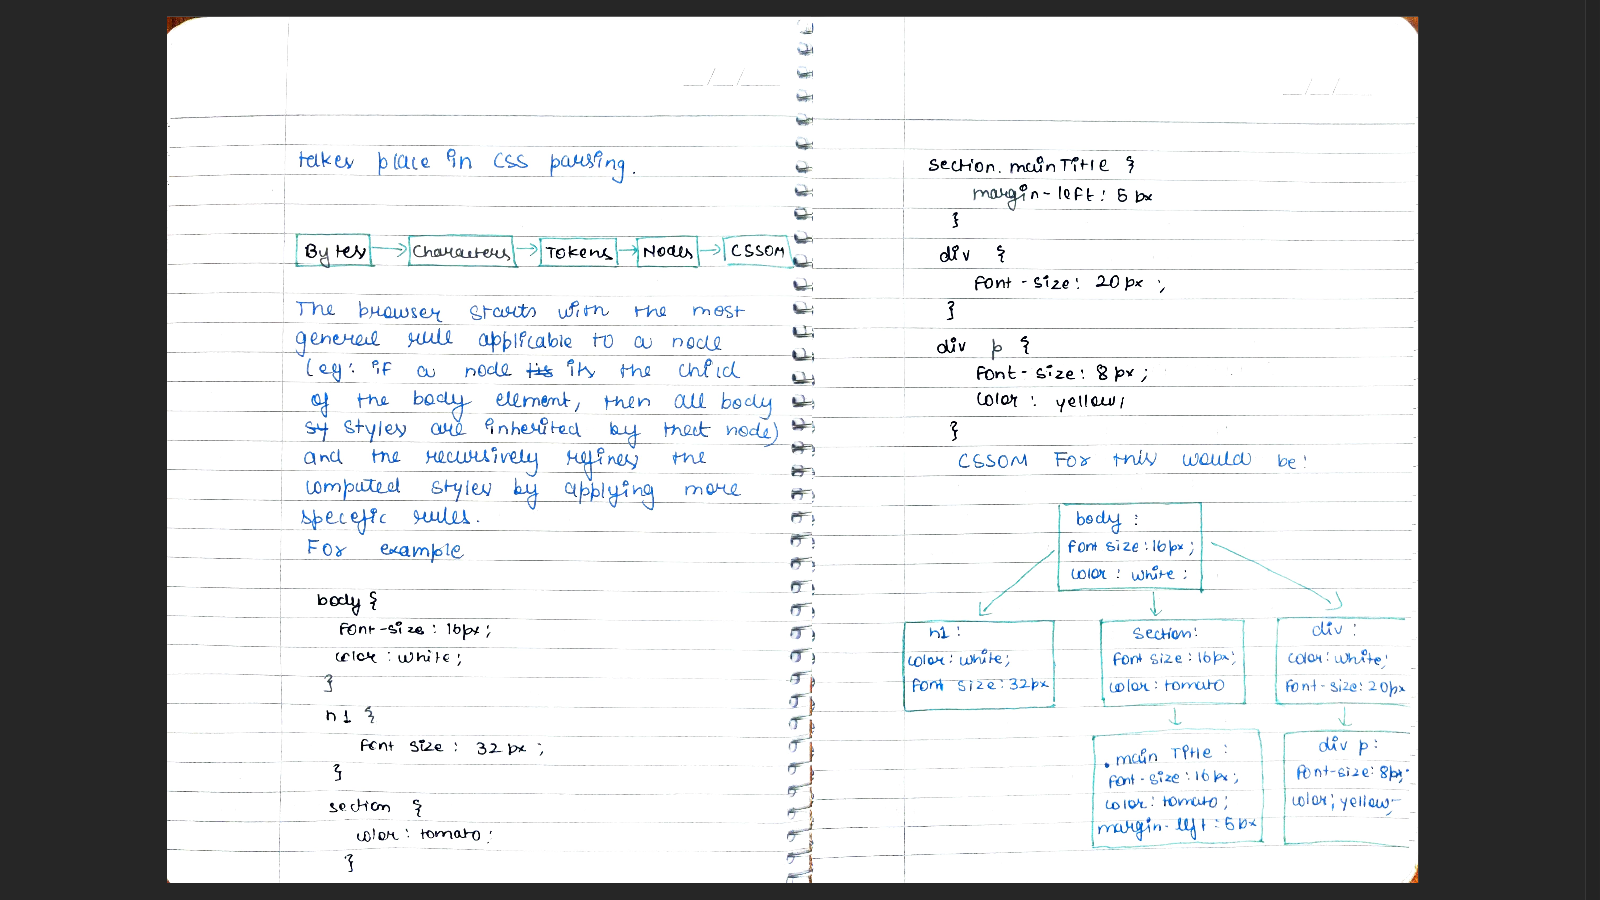 takes place in CSS parsing.
Bytes → Characters → Tokens → Nodes → CSSOM
The browser starts with the most
general rule applicable to a node
(eg: if a node its the child
of the body element, then all body
styles are inherited by that node)
and the recursively refines the
computed styles by applying more
specefic rules.
For example
body {
font-size : 16px ;
color : white ;
}
h1 {
font size : 32 px ;
}
section {
color : tomato :
}
section. mainTitle {
margin-left : 5 px
}
div {
font - size : 20 px ;
}
div p {
font - size : 8 px ;
color : yellow ;
}
CSSOM For this would be :
body :
font size : 16px ;
color : white :
h1 :
color : white ;
font size : 32px
section :
font size : 16px ;
color : tomato
div :
color : white ;
font-size : 20px
. main Title :
font-size : 16px ;
color : tomato ;
margin-left : 5px
div p :
font-size : 8px ;
color ; yellow ;